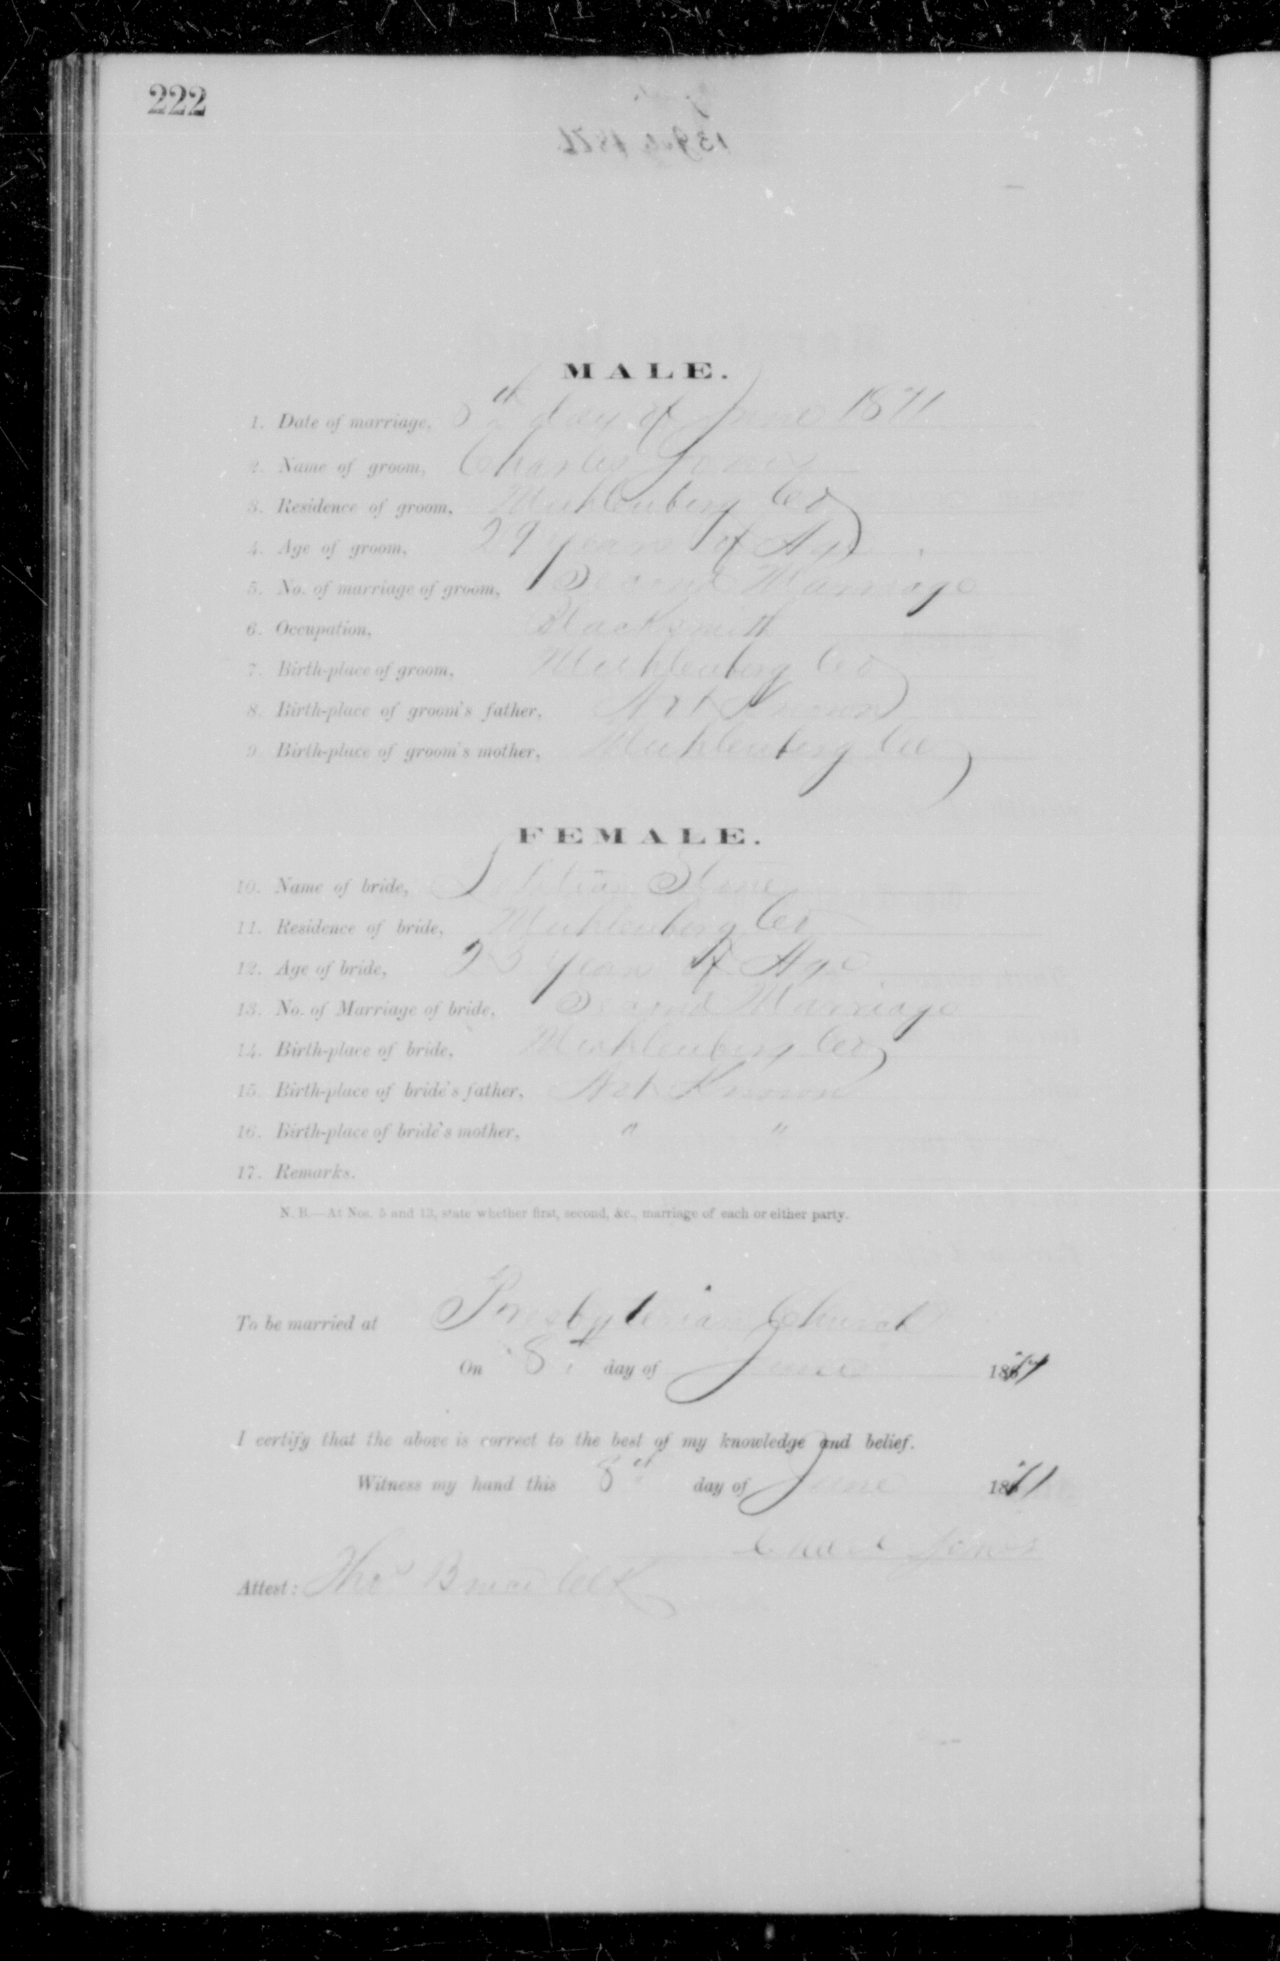 222
MALE.
1. Date of marriage, 8th day of June 1871
2. Name of groom, Charles Jones
3. Residence of groom, Muhlenberg Co
4. Age of groom, 29 years of Age
5. No. of marriage of groom, Second Marriage
6. Occupation, Blacksmith
7. Birth-place of groom, Muhlenberg Co
8. Birth-place of groom's father, Not Known
9. Birth-place of groom's mother, Muhlenberg Co
FEMALE.
10. Name of bride,
11. Residence of bride, Muhlenberg Co
12. Age of bride, years of Age
13. No. of Marriage of bride, Second Marriage
14. Birth-place of bride, Muhlenberg Co
15. Birth-place of bride's father, Not Known
16. Birth-place of bride's mother, " "
17. Remarks.
N. B.—At Nos. 5 and 13, state whether first, second, &c., marriage of each or either party.
To be married at Presbyterian Church
On 8th day of June 1871
I certify that the above is correct to the best of my knowledge and belief.
Witness my hand this 8th day of June 1871
Jones
Attest: Thos Clk